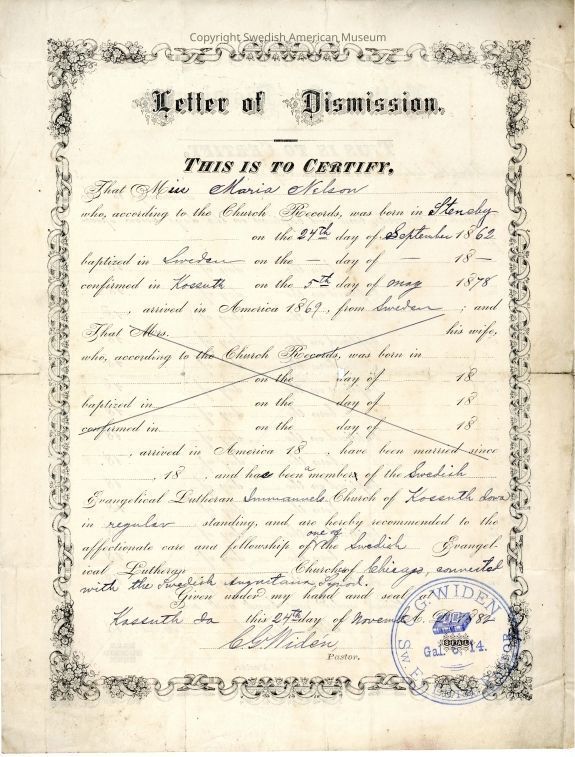 Copyright Swedish American Museum
Letter of Dismission.
THIS IS TO CERTIFY,
That Miss Maria Nelson
who, according to the Church Records, was born in Steneby
on the 24th day of September 1862
baptized in Sweden on the — day of — 18 —
confirmed in Kossuth on the 5th day of may 1878
, arrived in America 1869, from Sweden ; and
That Mrs. his wife,
who, according to the Church Records, was born in
on the day of 18
baptized in on the day of 18
confirmed in on the day of 18
, arrived in America 18 , have been married since
, 18 , and has been a member of the Swedish
Evangelical Lutheran Immanuels Church of Kossuth Iowa
in regular standing, and are hereby recommended to the
affectionate care and fellowship of one of the Swedish Evangel-
ical Lutheran Churches of Chicago, connected
with the Swedish Augustana Synod.
Given under my hand and seal at
Kossuth Ia this 24th day of Novemb A. D. 1882
C G Widén
Pastor.
C. G. WIDEN
SEAL
Gal. 6, 14.